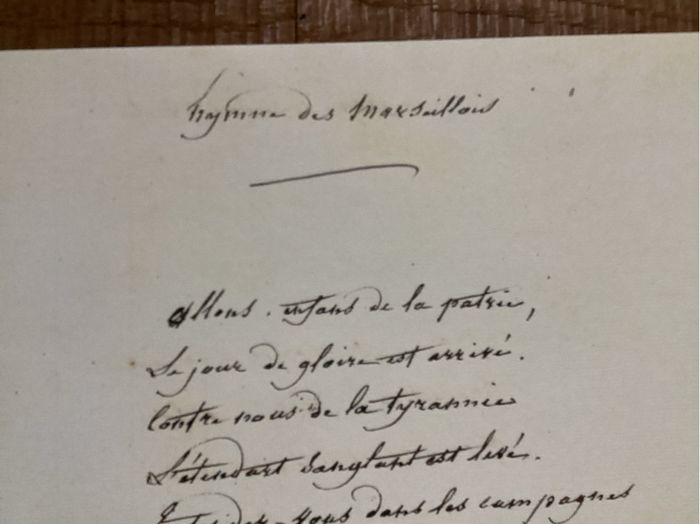 hymne des Marseillois
allons. enfans de la patrie,
Le jour de gloire est arrivé.
Contre nous de la tyrannie
L'étendart sanglant est levé.
Entendez-vous dans les campagnes